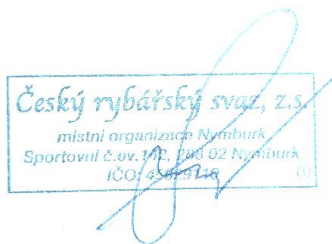 Český rybářský svaz, z.s.
místní organizace Nymburk
Sportovní 288 02 Nymburk
IČO: